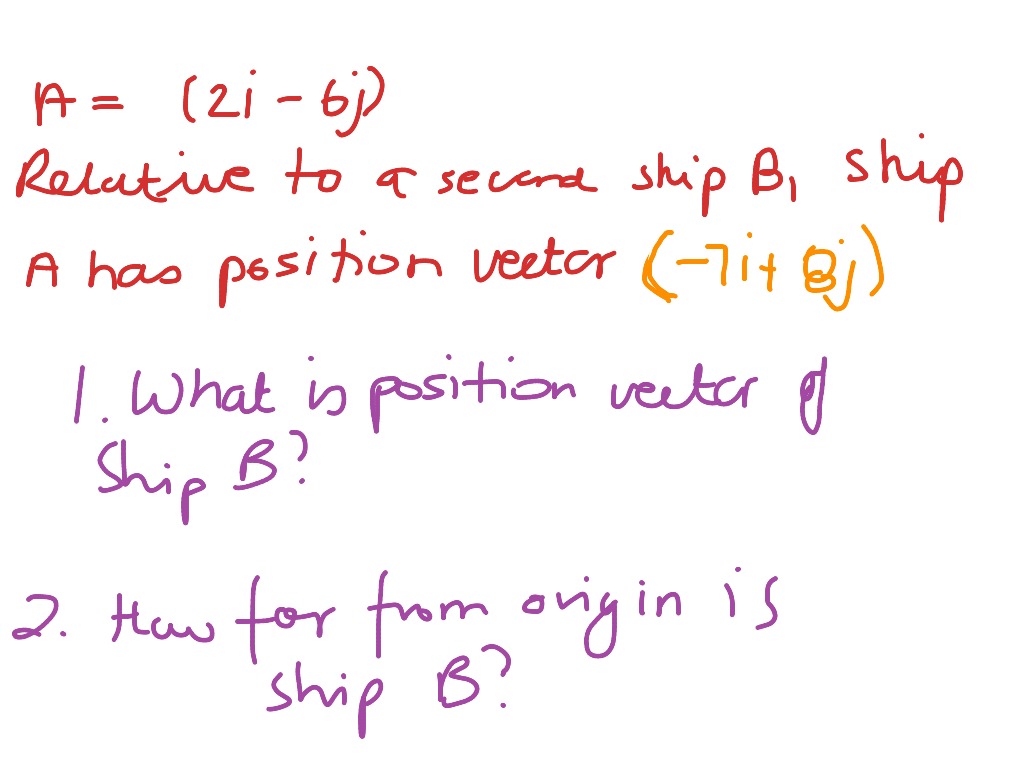 A = (2i - 6j)
Relative to a second ship B, ship
A has position vector (-7i + 8j)
1. What is position vector of
ship B?
2. How far from origin is
ship B?